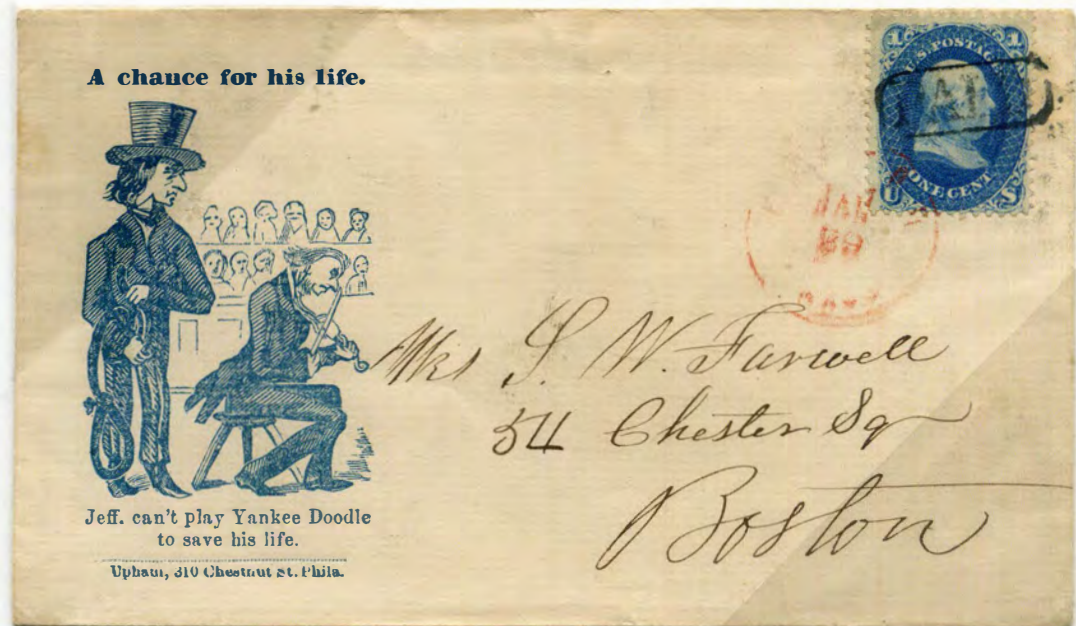 A chance for his life.
Jeff. can't play Yankee Doodle
to save his life.
Upham, 310 Chestnut St. Phila.
U.S. POSTAGE
1 1
ONE CENT
U S
PAID
JAN
29
PAID
Mrs S. W. Farwell
54 Chester Sq
Boston